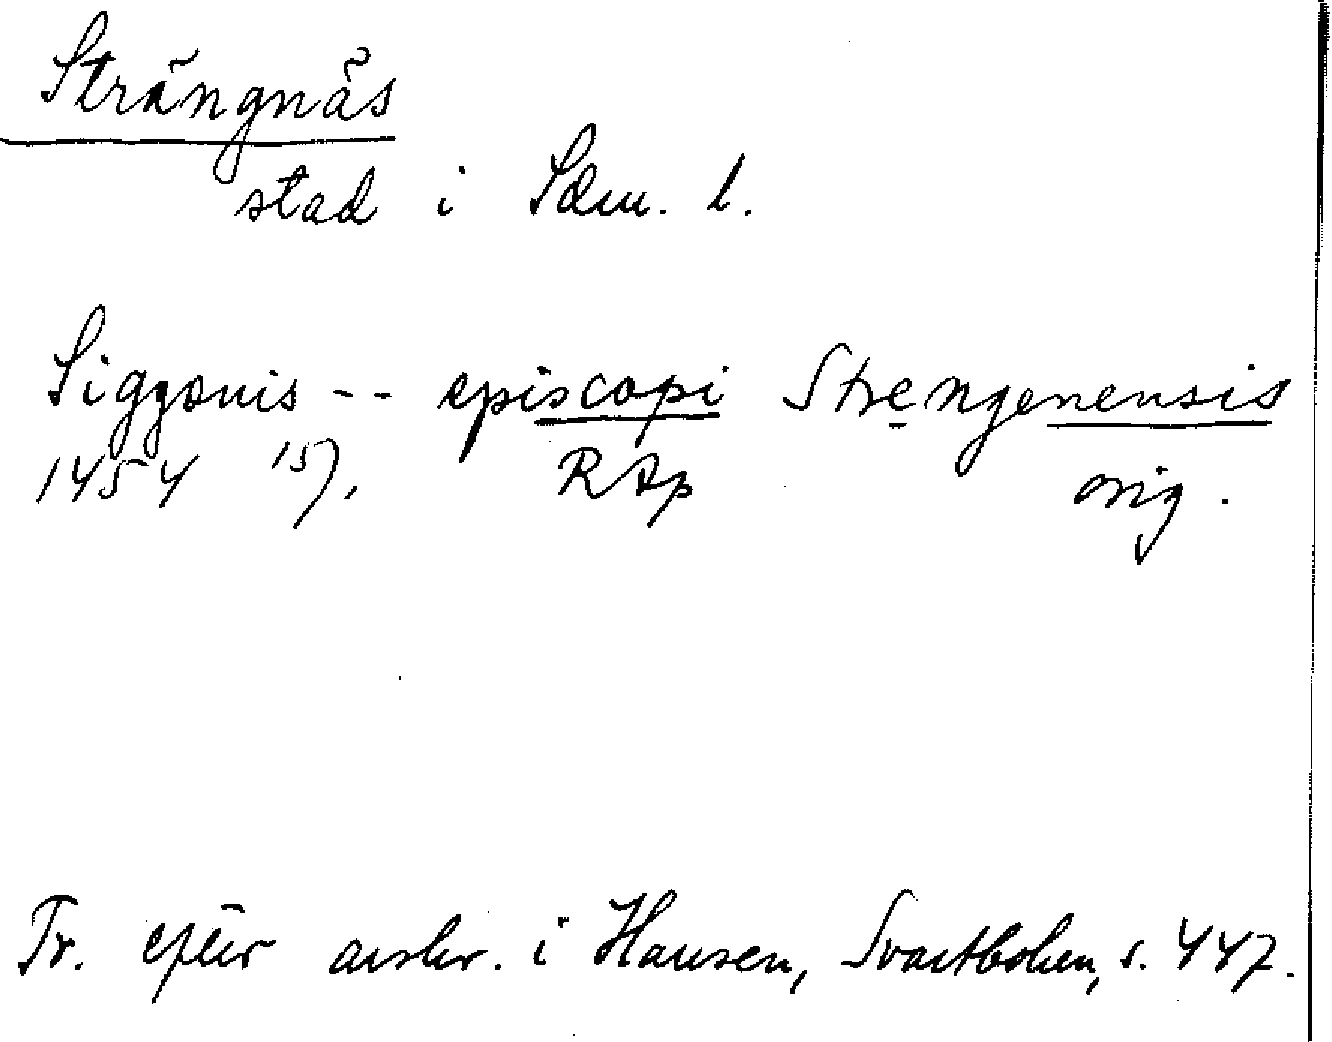 Strängnäs
stad i Söm. l.
Siggonis -- episcopi Strengenensis
1454 15/7. RAp orig.
Tr. efter avskr. i Hausen, Svartboken, s. 447.